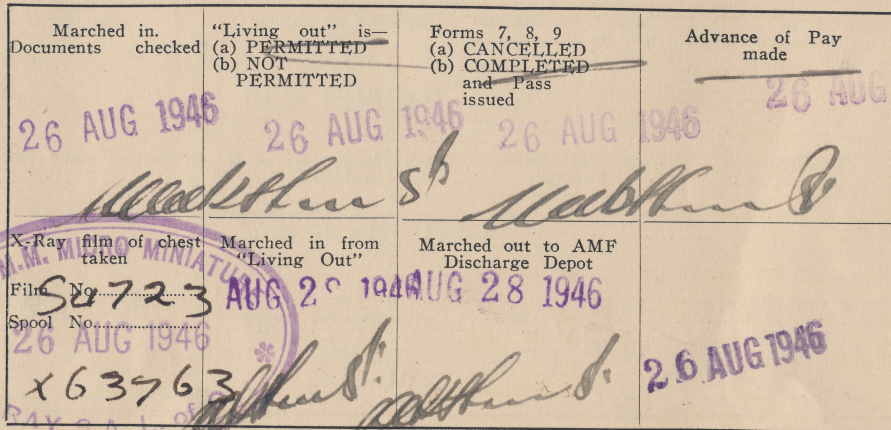 Marched in.
Documents checked
26 AUG 1946
"Living out" is—
(a) PERMITTED
(b) NOT
PERMITTED
26 AUG 1946
Forms 7, 8, 9
(a) CANCELLED
(b) COMPLETED
and Pass
issued
26 AUG 1946
Advance of Pay
made
26 AUG
X-Ray film of chest
taken
M.M. MICRO MINIATURE
Film No.
Spool No.
26 AUG 1946
X63763
Marched in from
"Living Out"
AUG 28 1946
Marched out to AMF
Discharge Depot
AUG 28 1946
26 AUG 1946